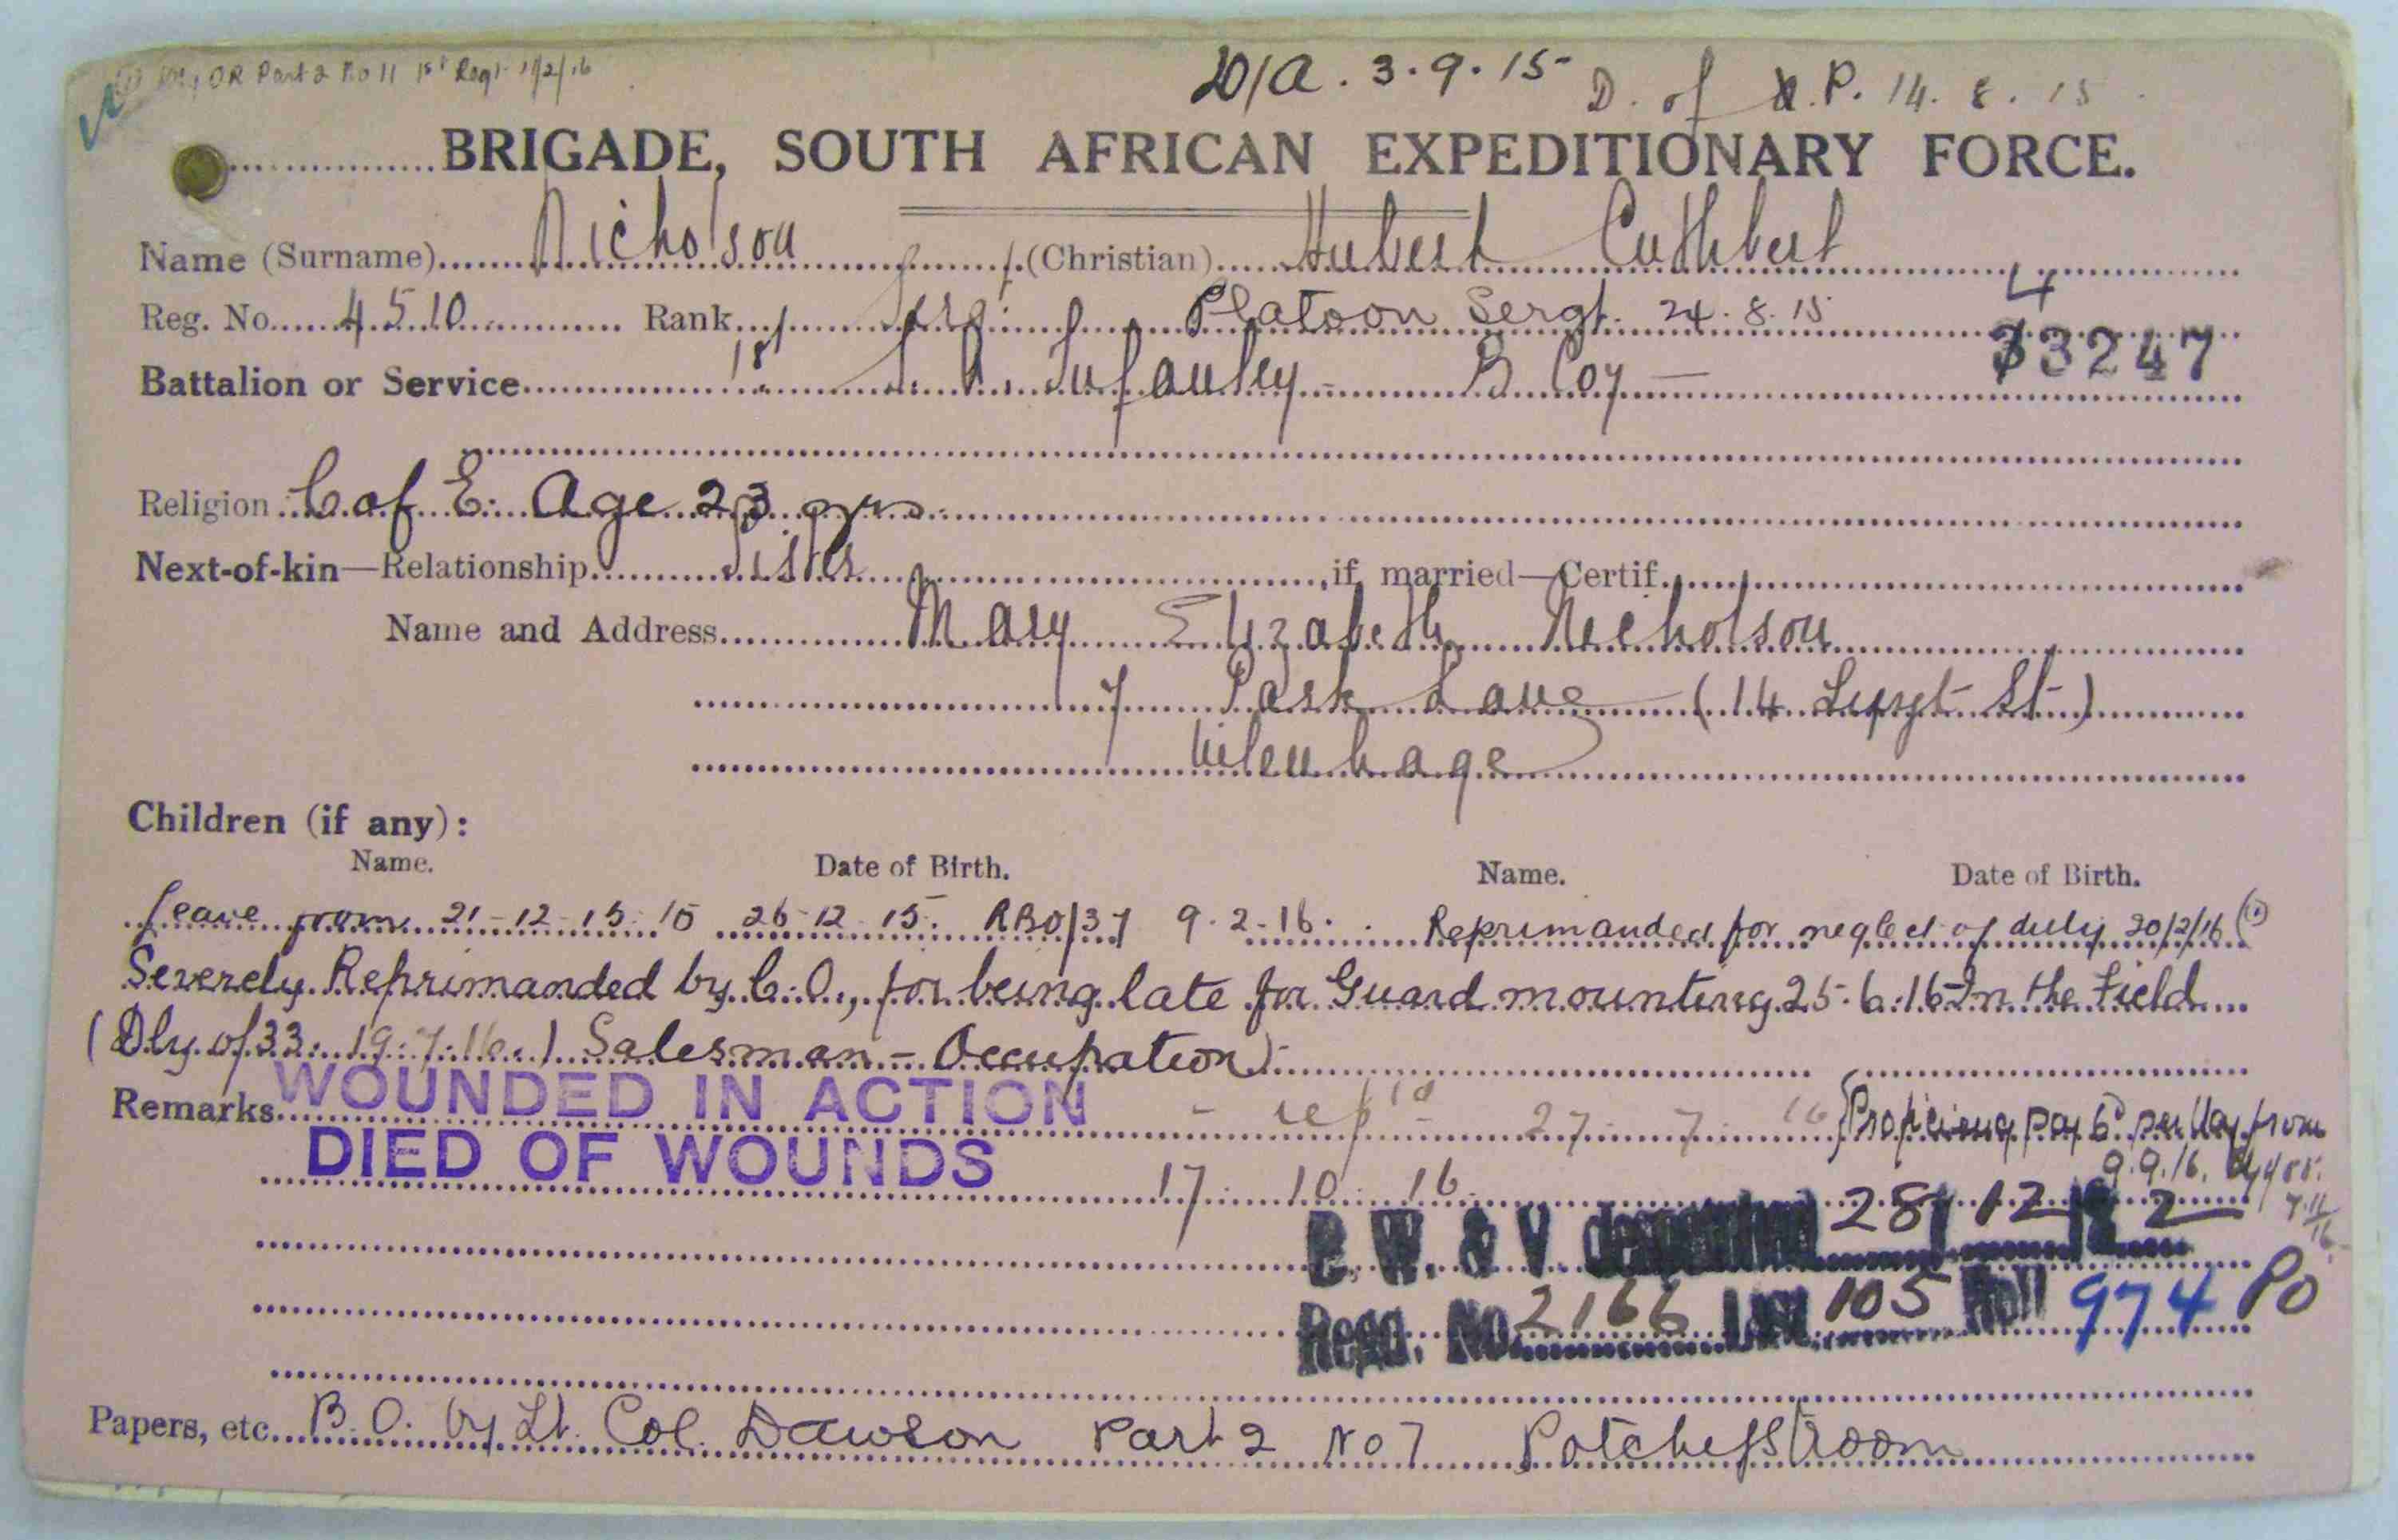 OR Part 2 No 11 1st Regt 11/2/16
D/A. 3.9.15 D. of P. 14.8.15
BRIGADE, SOUTH AFRICAN EXPEDITIONARY FORCE.
Name (Surname) Nicholson (Christian) Hubert Cuthbert
Reg. No. 4510 Rank Sergt Platoon Sergt. 24.8.15 4
33247
Battalion or Service 1st S.A. Infantry - B Coy -
Religion C of E. Age 23 yrs.
Next-of-kin—Relationship Sister, if married—Certif.
Name and Address Mary Elizabeth Nicholson
7 Park Lane (14 St)
Uitenhage
Children (if any):
Name. Date of Birth. Name. Date of Birth.
Leave from 21-12-15 to 26-12-15. RBO/37 9.2.16. Reprimanded for neglect of duty 20/2/16 (1)
Severely Reprimanded by C.O., for being late for Guard mounting 25.6.16 In the Field
(Dly of 33. 19.7.16.) Salesman - Occupation)
Remarks WOUNDED IN ACTION - repd 27 7 16 Proficiency pay 6d per day from
9.9.16.
DIED OF WOUNDS 17 10 16 7.11/16
B. W. & V. despatched 28/12/22
Regd. No. 2166 List 105 Roll 974 PO
Papers, etc. B.O. by Lt. Col. Dawson Part 2 No 7 Potchefstroom